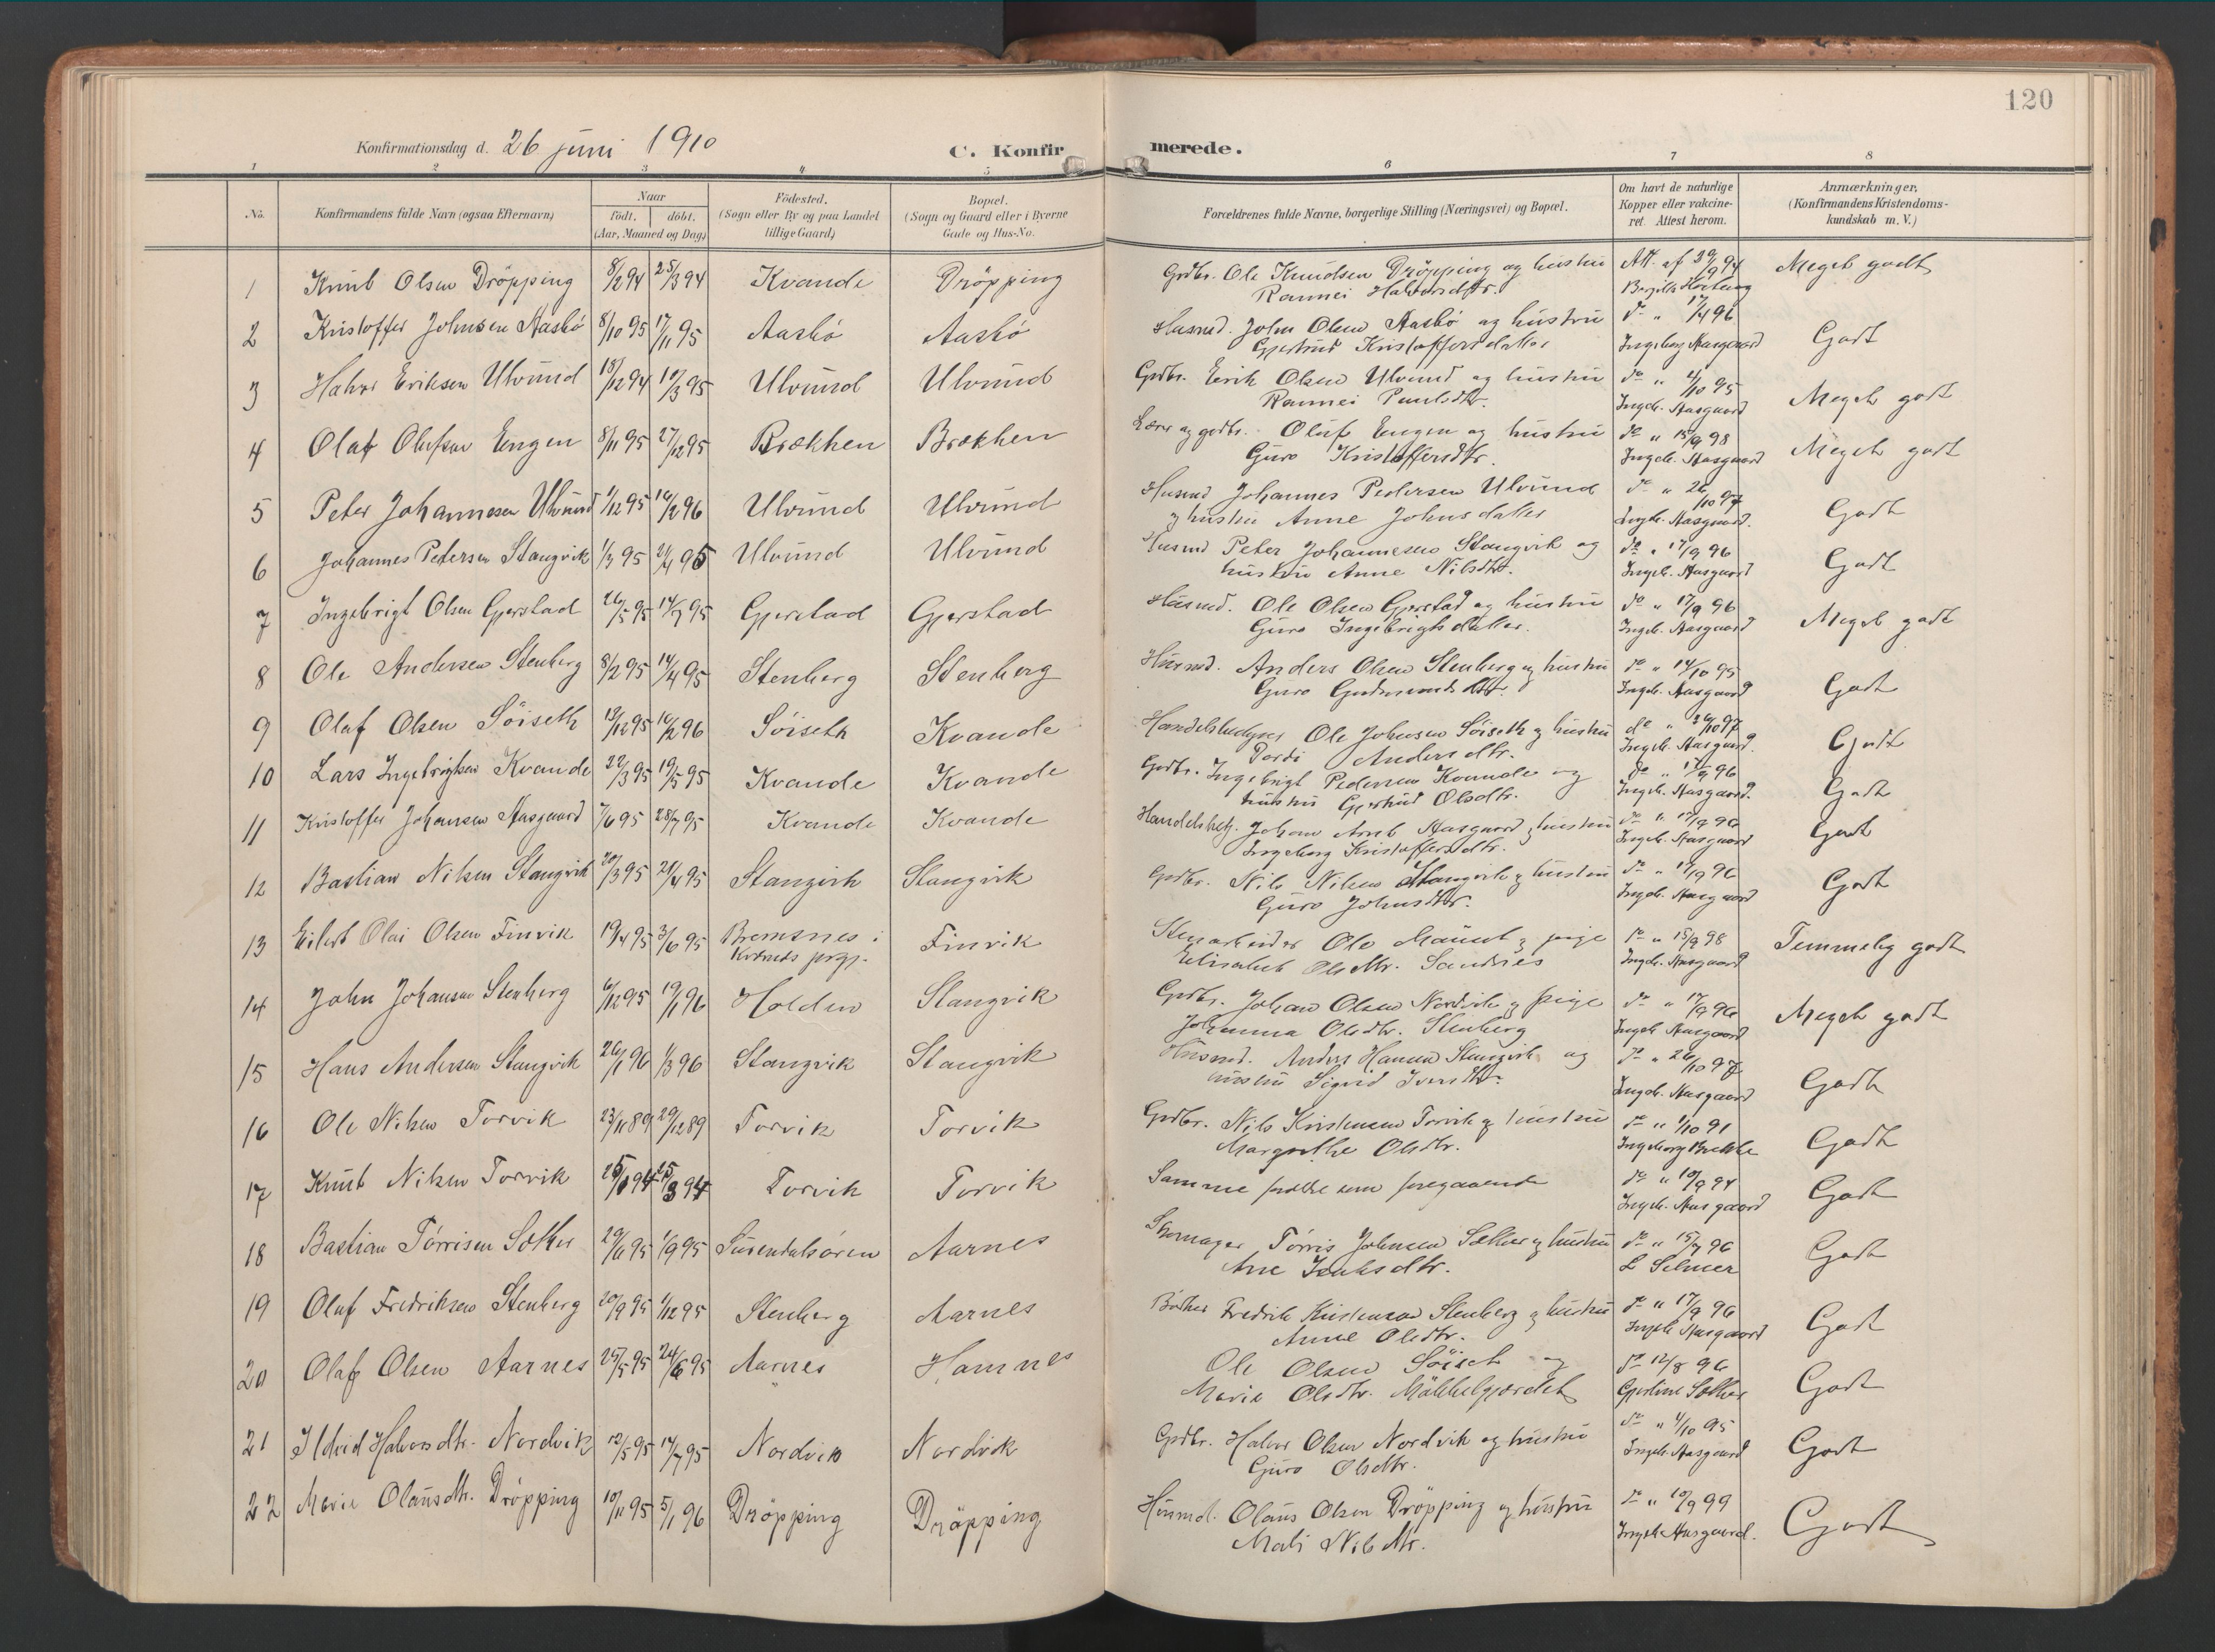 120
Konfirmationsdag d. 26 juni 1910
C. Konfirmerede.
1 2 3 4 5 6 7 8
No.
Konfirmandens fulde Navn (ogsaa Efternavn)
Naar
födt. döbt.
(Aar, Maaned og Dag)
Födested.
(Sogn eller By og paa Landet
tillige Gaard)
Bopæl.
(Sogn og Gaard eller i Byerne
Gade og Hus-No.
Forældrenes fulde Navne, borgerlige Stilling (Næringsvei) og Bopæl.
Om havt de naturlige
Kopper eller vakcine-
ret. Attest herom.
Anmærkninger.
(Konfirmandens Kristendoms-
kundskab m. V.)
1 Knut Olsen Dröpping 8/2 94 25/3 94 Kvande Dröpping Grdbr. Ole Knudsen Dröpping og hustru Att. af 29/9 94 Meget godt
Rannei Halvordsdtr.
2 Kristoffer Johnsen Aasbö 8/10 95 17/11 95 Aasbö Aasbö Husmd. John Olsen Aasbö og hustru do " 17/4 96 Godt
Gjertrud Kristoffersdatter Ingeborg Aasgaard
3 Halvor Eriksen Ulvund 18/12 94 10/3 95 Ulvund Ulvund Grdbr. Erik Olsen Ulvund og hustru do " 4/10 95 Meget godt
Rannei Paulsdtr. Ingeb. Aasgaard
4 Olaf Olufsen Engen 8/11 95 27/12 95 Brækken Brækken Lærer og grdbr. Oluf Engen og hustru do " 15/9 98 Meget godt
Guro Kristoffersdtr. Ingeb. Aasgaard
5 Peter Johannesen Ulvund 1/12 95 16/2 96 Ulvund Ulvund Husmd Johannes Pedersen Ulvund do " 26/10 97 Godt
og hustru Anne Johnsdatter Ingeb. Aasgaard.
6 Johannes Petersen Stangvik 1/3 95 21/4 95 Ulvund Ulvund Husmd Peter Johannesen Stangvik og do " 17/9 96 Godt
hustru Anne Nilsdtr. Ingeb. Aasgaard
7 Ingebrigt Olsen Gjerstad 26/5 95 14/7 95 Gjerstad Gjerstad Husmd. Ole Olsen Gjerstad og hustru do " 17/9 96 Meget godt
Guro Ingebrigtsdatter. Ingeb. Aasgaard
8 Ole Andersen Stenberg 8/2 95 14/4 95 Stenberg Stenberg Husmd. Anders Olsen Stenberg og hustru do " 14/10 95 Godt
Guro Gudmundsdtr. Ingeb. Aasgaard
9 Olaf Olsen Söiseth 13/12 95 16/2 96 Söiseth Kvande Ole Johnsen Söiseth og hustru do " 26/10 97 Godt
Dordi Andersdtr. Ingeb. Aasgaard.
10 Lars Ingebrigtsen Kvande 22/3 95 19/5 95 Kvande Kvande Grdbr. Ingebrigt Pedersen Kvande og do " 17/9 96 Godt
hustru Gjertrud Olsdtr. Ingeb. Aasgaard.
11 Kristoffer Johansen Aasgaard 7/6 95 28/7 95 Kvande Kvande Handelsbetj. Johan Arnt Aasgaard og hustru do " 17/9 96 Godt
Ingeborg Kristoffersdtr. Ingeb. Aasgaard
12 Bastian Nilsen Stangvik 20/3 95 21/4 95 Stangvik Stangvik Grdbr. Nils Nilsen Stangvik og hustru do " 17/9 96 Godt
Guro Johnsdtr. Ingeb. Aasgaard
13 Eilert Olai Olsen Finvik 19/4 95 3/6 95 Bremsnes i Finvik Stenarbeider Ole og pige do " 15/9 98 Temmelig godt
Kværnes prgj. Elisabet Olsdtr. Sandnes Ingeb. Aasgaard
14 John Johansen Stenberg 6/12 95 19/1 96 Holden Stangvik Grdbr. Johan Olsen Nordvik og pige do " 17/9 96 Meget godt
Johanna Olsdtr. Stenberg Ingeb. Aasgaard
15 Hans Andersen Stangvik 26/1 96 1/3 96 Stangvik Stangvik Husmd. Anders Hansen Stangvik og do " 26/10 97 Godt
hustru Sigrid Iversdtr. Ingeb. Aasgaard
16 Ole Nilsen Torvik 23/11 89 29/12 89 Torvik Torvik Grdbr. Nils Kristensen Torvik og hustru do " 1/10 91 Godt
Margrethe Olsdtr. Ingeborg Brekke
17 Knut Nilsen Torvik 25/3 94 Torvik Torvik Samme forældre som foregaaende do " 10/9 94 Godt
Ingeb. Aasgaard
18 Bastian Törrisen Sæther 29/6 95 1/9 95 Surendalsören Aarnes Skomager Törris Johnsen Sæther og hustru do " 15/7 96 Godt
Ane Isaksdtr. L Selmer
19 Oluf Fredriksen Stenberg 20/9 95 1/12 95 Stenberg Aarnes Fredrik Kristensen Stenberg og hustru do " 17/9 96 Godt
Anne Olsdtr. Ingeb. Aasgaard
20 Olaf Olsen Aarnes 25/5 95 24/6 95 Aarnes Hamnes Ole Olsen Söiset og do 12/8 96 Godt
Marie Olsdtr. Gjertine Sæther
21 Ildrid Halvorsdtr. Nordvik 12/5 95 14/7 95 Nordvik Nordvik Grdbr. Halvor Olsen Nordvik og hustru do " 4/10 95 Godt
Guro Olsdtr. Ingeb. Aasgaard
22 Marie Olausdtr. Dröpping 10/11 95 5/1 96 Dröpping Dröpping Husmd. Olaus Olsen Dröpping og hustru do " 10/9 99 Godt
Mali Nilsdtr. Ingeb. Aasgaard.